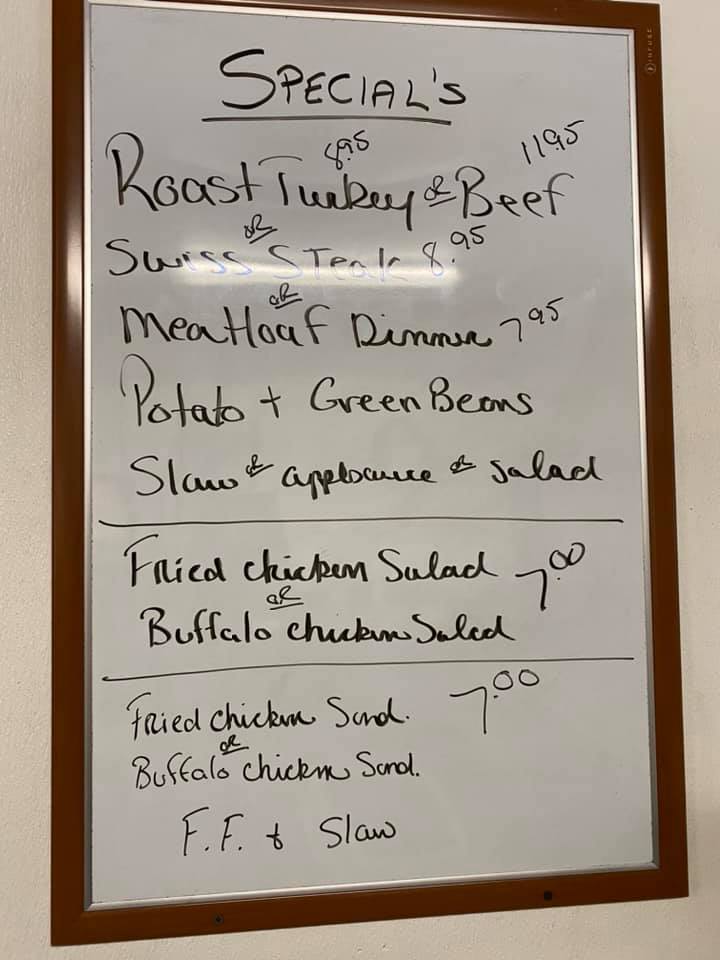 SPECIAL'S
8.95 11.95
Roast Turkey or Beef
or
Swiss Steak 8.95
or
Meatloaf Dinner 7.95
Potato + Green Beans
Slaw or applesauce or salad
Fried chicken Salad 7.00
or
Buffalo chicken Salad
Fried chicken Sand. 7.00
or
Buffalo chicken Sand.
F.F. + Slaw
INFUSE